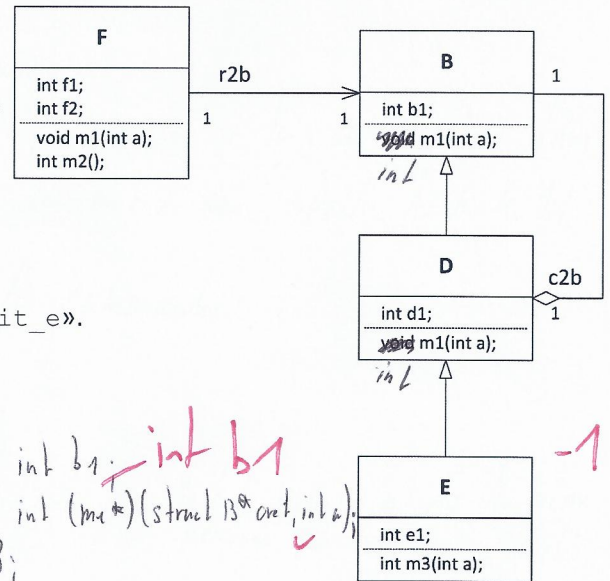 F
int f1;
int f2;
void m1(int a);
int m2();
r2b
1
1
B
int b1;
void m1(int a);
int
1
D
int d1;
void m1(int a);
int
c2b
1
it_e».
int b1;
int b1
int (m1*)(struct B* 
int a);
};
-1
E
int e1;
int m3(int a);